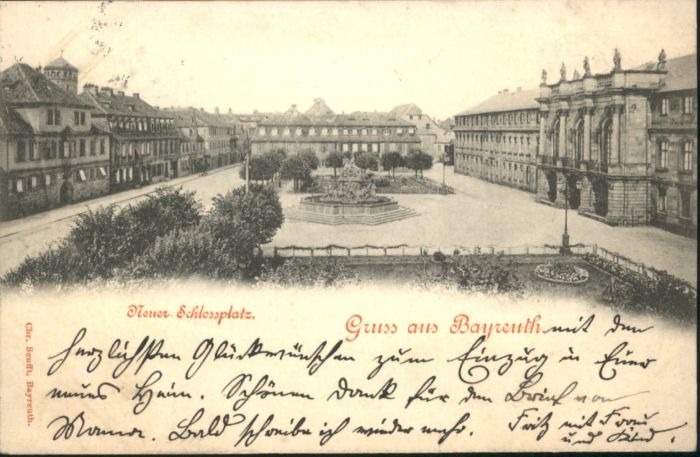 Neuer Schlossplatz.
Gruss aus Bayreuth mit den
herzlichsten Glückwünschen zum Einzug in Euer
neues Heim. Schönen Dank für den Brief von
Mama. Bald schreibe ich wieder mehr. Fritz mit Frau
und Kind.
Chr. Senfft, Bayreuth.